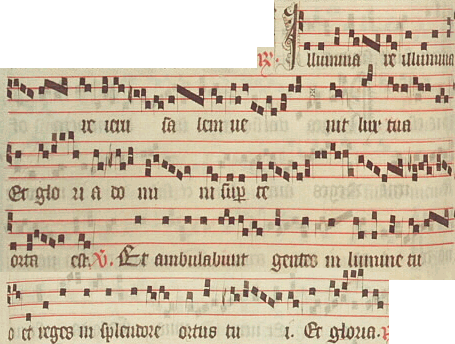 R. Illumina re illumina
re ieru sa lem ue nit lux tua
Et glo ri a do mi ni sup te
orta est. V. Et ambulabunt gentes in lumine tu
o et reges in splendore ortus tu i. Et gloria.